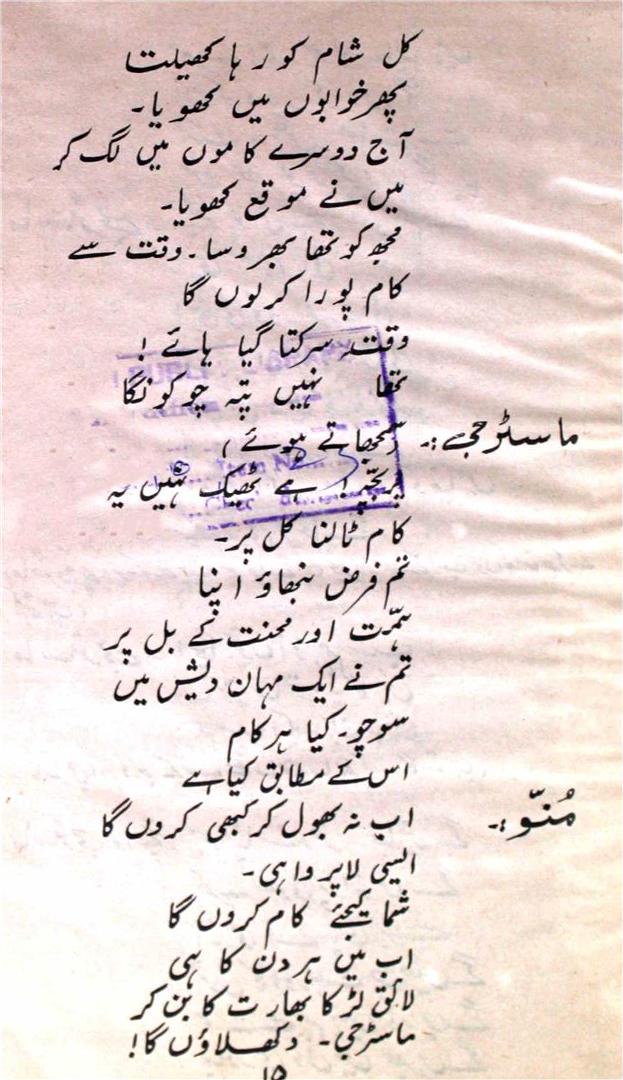 کل شام کو رہا کھیلتا
پھر خوابوں میں کھویا۔
آج دوسرے کاموں میں لگ کر
میں نے موقع کھویا۔
مجھ کو تھا بھروسا۔ وقت سے
کام پورا کر لوں گا
وقت سرکتا گیا ہائے !
تھا نہیں پتہ چوکونگا
ماسٹر جی :۔ (سمجھاتے ہوئے)
پر بچّے! ہے ٹھیک نہیں یہ
کام ٹالنا کل پر۔
تم فرض نبھاؤ اپنا
ہمّت اور محنت کے بل پر
تم نے ایک مہان دیش میں
سوچو۔ کیا ہر کام
اس کے مطابق کیا ہے
مُنّو :۔ اب نہ بھول کر کبھی کروں گا
ایسی لاپرواہی۔
شما کیجئے کام کروں گا
اب میں ہر دن کا ہی
لائق لڑکا بھارت کا بن کر
ماسٹر جی۔ دکھلاؤں گا!
۱۵